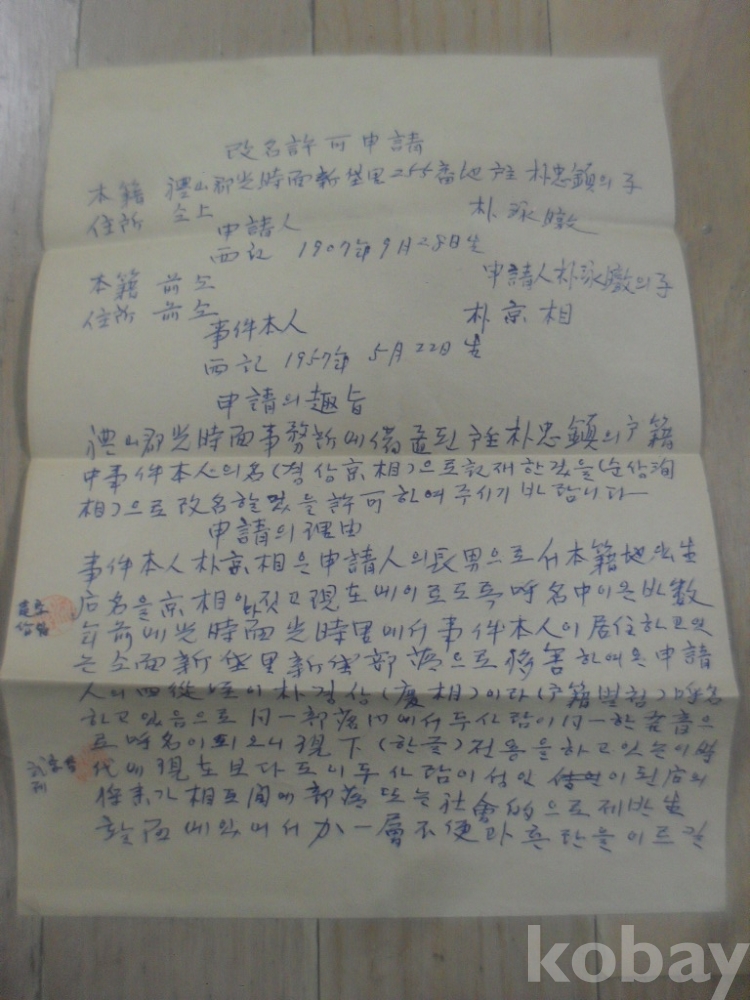 改名許可申請
本籍 禮山郡光時面新垈里255番地 戶主 朴忠鎭의 子
住所 仝上 朴
申請人
西記 1907年 9月 28日生
本籍 前仝 申請人朴 의 子
住所 前仝 朴京相
事件本人
西記 1957年 5月 22日 生
申請의 趣旨
禮山郡光時面事務所에 備置된 戶主 朴忠鎭의 戶籍
中事件本人의 名(경상京相)으로 記載한것을(순상洵
相)으로 改名할 것을 許可하여 주시기 바랍니다
申請의 理由
事件本人 朴京相은 申請人의 長男으로서 本籍地 出生
后名을 京相 現在 呼名中이온바 數
年前에 光時面 光時里에서 事件本人이 居住하고있
는 仝面 新垈里 新垈部落으로 移害하여온 申請
人의 四從 이 朴경상(慶相)이라(戶籍별첨) 呼名
하고 있음으로 同一部落內에서 두사람이 同一한 音으
로 呼名이 되오니 現下 (한글)전용을 하고있는 이時
代에 現在보다도 이 두사람이 성인 이 된后의
將來가 相互間에 部落 또는 社會的으로 제반生
활面에 있어서 가一層 不便과 혼란을 이르킬
kobay